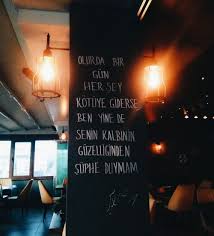 OLURDA BIR
GÜN
HERŞEY
KÖTÜYE GİDERSE
BEN YINE DE
SENİN KALBİNİN
GÜZELLİĞİNDEN
ŞÜPHE DUYMAM